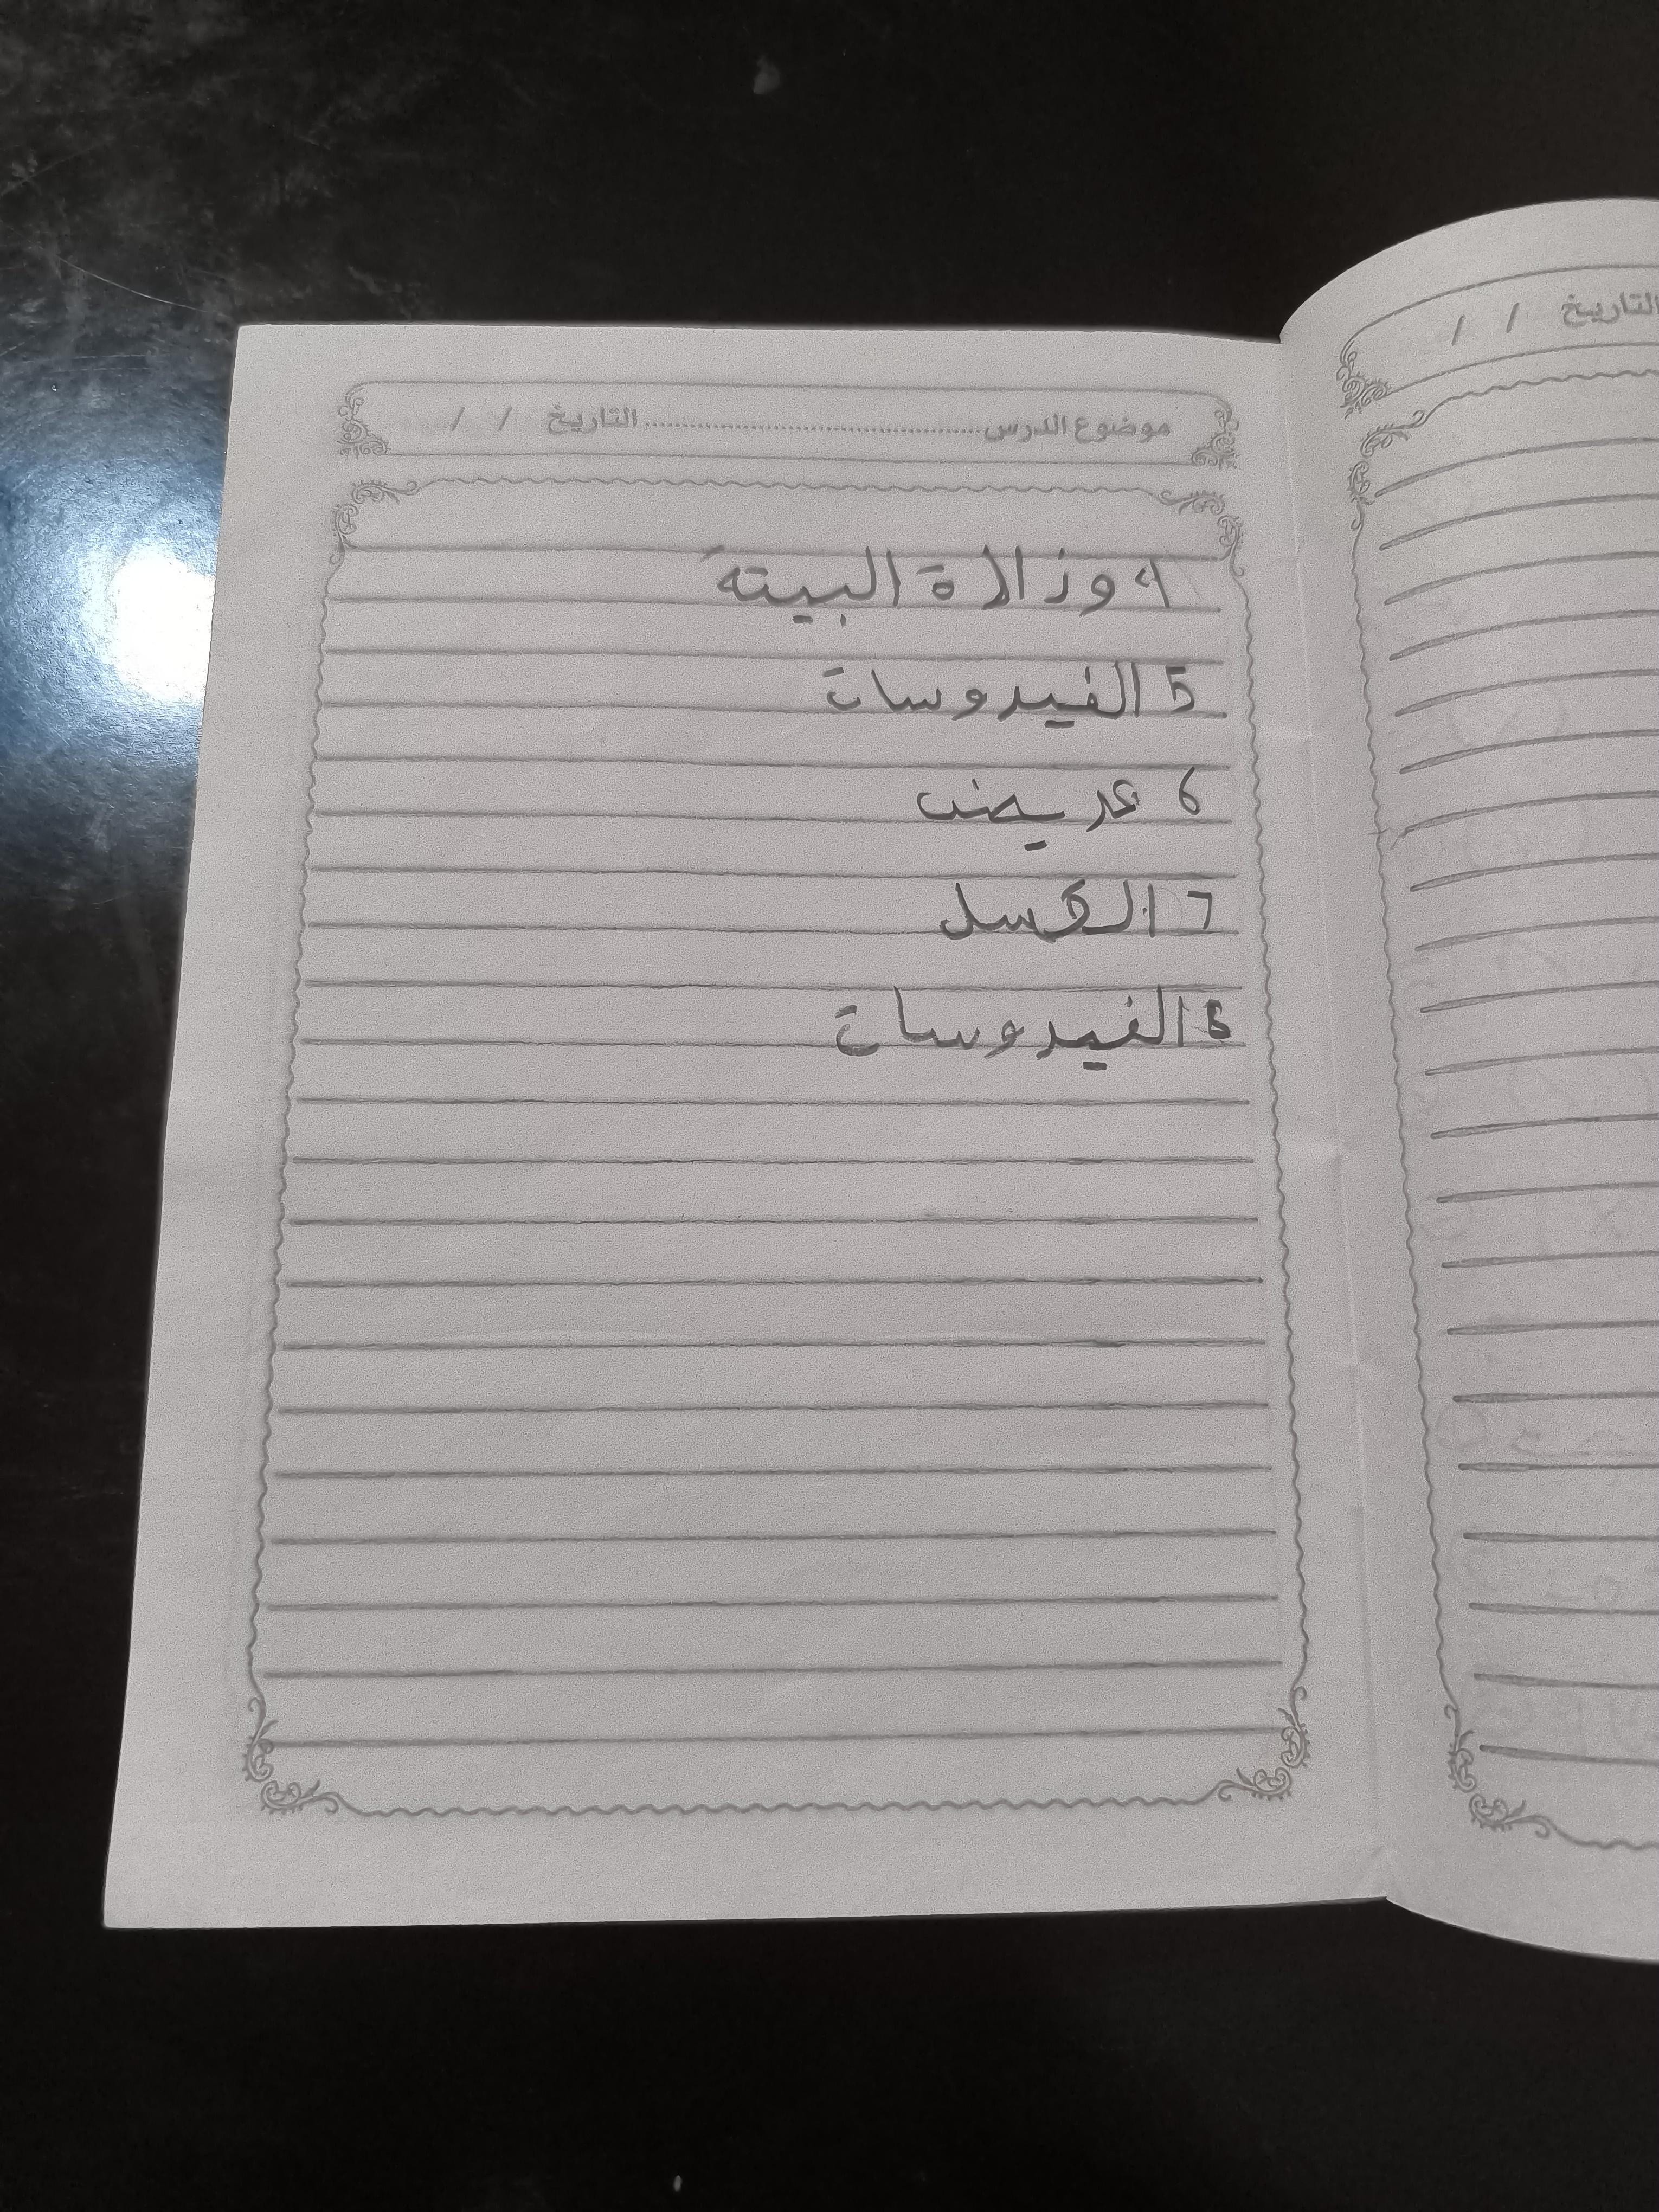 موضوع الدرس............................ التاريخ / /
4 وزارة البيته
5 الفيروسات
6 عريض
7 الكسل
8 الفيروسات
التاريخ / /